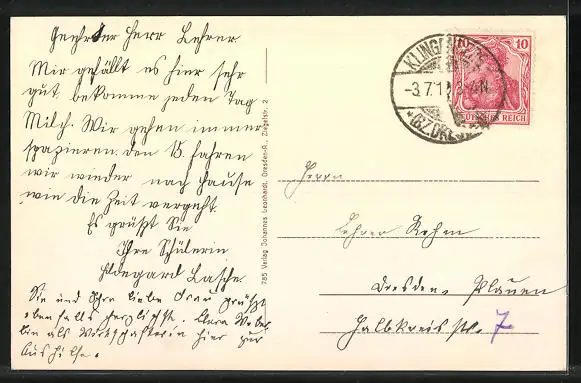 Geehrter Herr Lehrer.
Mir gefällt es hier sehr
gut. bekomme jeden Tag
Milch. Wir gehen immer
spazieren. den 18. fahren
wir wieder nach Hause
wie die Zeit vergeht.
Es grüßt Sie
Ihre Schülerin
Hildegard Lasche.
Sie und Ihre liebe Frau grüßt
ebenfalls herzlichst. Clara
als Wirtschafterin hier zur
Aushilfe.
785 Verlag Johannes Leonhardi, Dresden-A., Ziegelstr. 2
KLINGENBERG
-3.7.1 3-4N.
*(BZ.DRESDEN)
10 10
DEUTSCHES REICH
Herrn
Lehrer Rehm
Dresden, Plauen
Halbkreisstr. 7